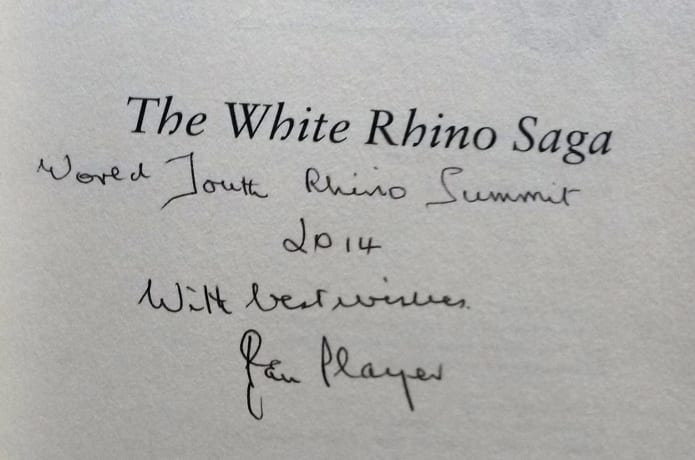 The White Rhino Saga
World Youth Rhino Summit
2014
With best wishes.
Ian Player